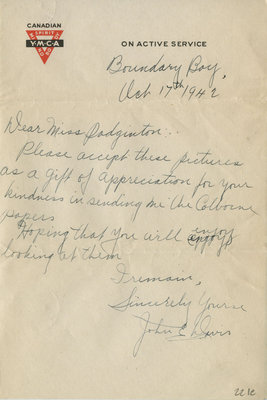 CANADIAN
SPIRIT
Y·M·C·A
MIND BODY
ON ACTIVE SERVICE
Boundary Bay,
Oct 17th 1942
Dear Miss Padginton:-
Please accept these pictures
as a gift of appreciation for your
kindness in sending me the Colborne
papers
Hoping that you will enjoy
looking at them
I remain,
Sincerely Yours
John E Davis